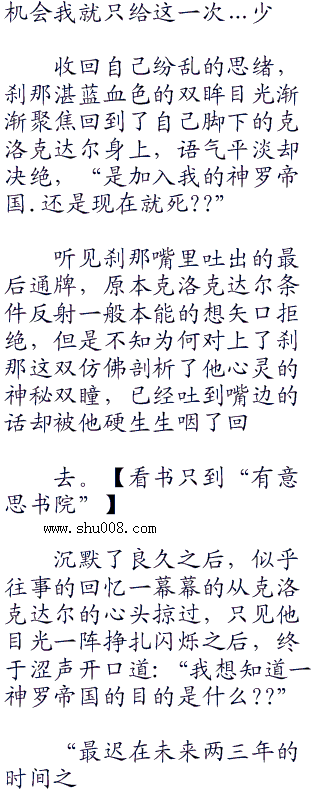 机会我就只给这一次…少
收回自己纷乱的思绪，
刹那湛蓝血色的双眸目光渐
渐聚焦回到了自己脚下的克
洛克达尔身上，语气平淡却
决绝，“是加入我的神罗帝
国.还是现在就死??”
听见刹那嘴里吐出的最
后通牌，原本克洛克达尔条
件反射一般本能的想矢口拒
绝，但是不知为何对上了刹
那这双仿佛剖析了他心灵的
神秘双瞳，已经吐到嘴边的
话却被他硬生生咽了回
去。【看书只到“有意
思书院”】
www.shu008.com
沉默了良久之后，似乎
往事的回忆一幕幕的从克洛
克达尔的心头掠过，只见他
目光一阵挣扎闪烁之后，终
于涩声开口道:“我想知道一
神罗帝国的目的是什么??”
“最迟在未来两三年的
时间之